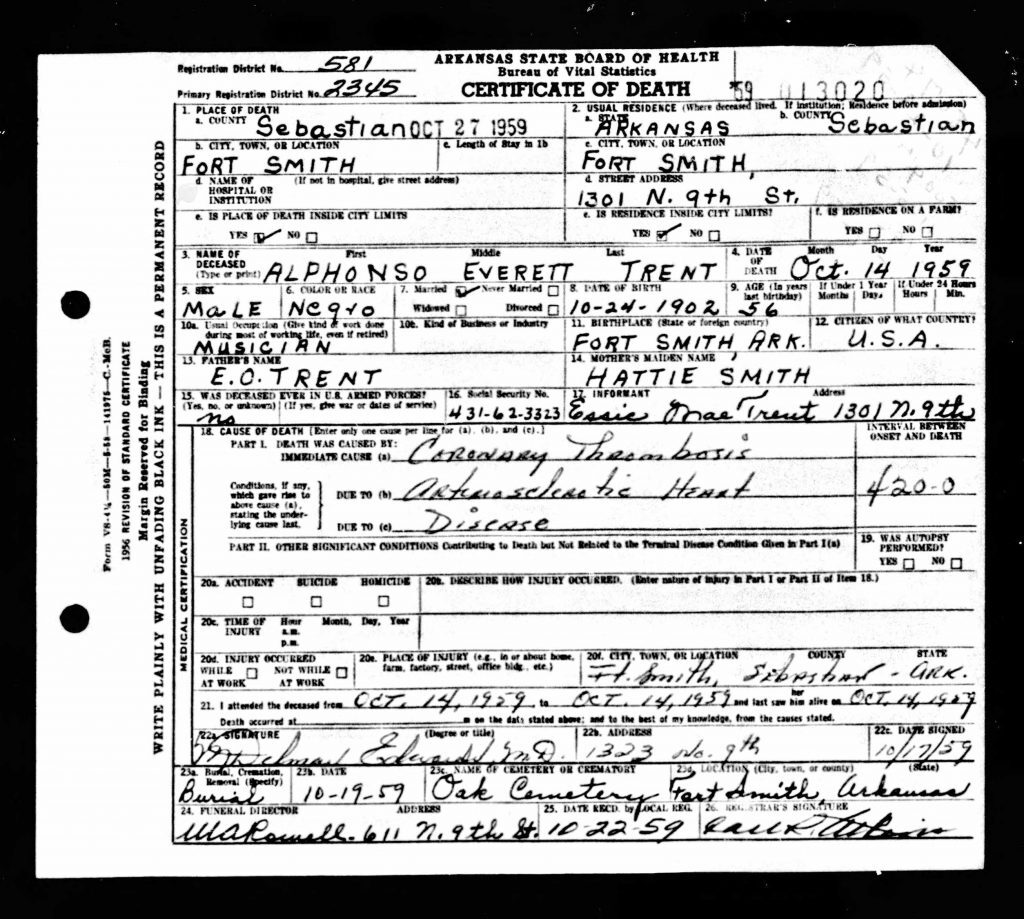 ARKANSAS STATE BOARD OF HEALTH
Bureau of Vital Statistics
CERTIFICATE OF DEATH
Registration District No. 581
Primary Registration District No. 2345
59 013020
1. PLACE OF DEATH
a. COUNTY Sebastian OCT 27 1959
2. USUAL RESIDENCE (Where deceased lived. If institution; Residence before admission)
a. STATE ARKANSAS b. COUNTY Sebastian
b. CITY, TOWN, OR LOCATION c. Length of Stay in 1b
FORT SMITH
c. CITY, TOWN, OR LOCATION
FORT SMITH,
d. NAME OF HOSPITAL OR INSTITUTION (If not in hospital, give street address)
d. STREET ADDRESS
1301 N. 9th St.
e. IS PLACE OF DEATH INSIDE CITY LIMITS
YES NO
e. IS RESIDENCE INSIDE CITY LIMITS?
YES NO
f. IS RESIDENCE ON A FARM?
YES NO
3. NAME OF DECEASED (Type or print) First Middle Last
ALPHONSO EVERETT TRENT
4. DATE OF DEATH Month Day Year
Oct. 14 1959
5. SEX
MALE
6. COLOR OR RACE
Negro
7. Married Never Married
Widowed Divorced
8. DATE OF BIRTH
10-24-1902
9. AGE (In years last birthday) If Under 1 Year Months Days If Under 24 Hours Hours Min.
56
10a. Usual Occupation (Give kind of work done during most of working life, even if retired)
MUSICIAN
10b. Kind of Business or Industry
11. BIRTHPLACE (State or foreign country)
FORT SMITH ARK.
12. CITIZEN OF WHAT COUNTRY?
U.S.A.
13. FATHER'S NAME
E.O. TRENT
14. MOTHER'S MAIDEN NAME
HATTIE SMITH
15. WAS DECEASED EVER IN U.S. ARMED FORCES?
(Yes, no, or unknown) (If yes, give war or dates of service)
no
16. Social Security No.
431-62-3323
17. INFORMANT Address
Essie Mae Trent 1301 N. 9th
18. CAUSE OF DEATH [Enter only one cause per line for (a), (b), and (c).]
INTERVAL BETWEEN ONSET AND DEATH
PART I. DEATH WAS CAUSED BY:
IMMEDIATE CAUSE (a) Coronary Thrombosis
Conditions, if any, which gave rise to above cause (a), stating the underlying cause last.
DUE TO (b) Arteriosclerotic Heart
420-0
DUE TO (c) Disease
PART II. OTHER SIGNIFICANT CONDITIONS Contributing to Death but Not Related to the Terminal Disease Condition Given in Part I(a)
19. WAS AUTOPSY PERFORMED?
YES NO
20a. ACCIDENT SUICIDE HOMICIDE
20b. DESCRIBE HOW INJURY OCCURRED. (Enter nature of injury in Part I or Part II of Item 18.)
20c. TIME OF INJURY Hour a.m. p.m. Month, Day, Year
20d. INJURY OCCURRED
WHILE AT WORK NOT WHILE AT WORK
20e. PLACE OF INJURY (e.g., in or about home, farm, factory, street, office bldg., etc.)
20f. CITY, TOWN, OR LOCATION COUNTY STATE
Ft. Smith, Sebastian - ARK.
21. I attended the deceased from OCT. 14, 1959 to OCT. 14, 1959 and last saw her him alive on OCT. 14, 1959
Death occurred at m on the date stated above; and to the best of my knowledge, from the causes stated.
22a. SIGNATURE (Degree or title)
Edwards M.D.
22b. ADDRESS
1323 No. 9th
22c. DATE SIGNED
10/17/59
23a. Burial, Cremation, Removal (Specify)
Burial
23b. DATE
10-19-59
23c. NAME OF CEMETERY OR CREMATORY
Oak Cemetery
23d. LOCATION (City, town, or county) (State)
Fort Smith, Arkansas
24. FUNERAL DIRECTOR ADDRESS
611 N. 9th St.
25. DATE RECD. BY LOCAL REG.
10-22-59
26. REGISTRAR'S SIGNATURE
MEDICAL CERTIFICATION
WRITE PLAINLY WITH UNFADING BLACK INK — THIS IS A PERMANENT RECORD
Margin Reserved for Binding
1956 REVISION OF STANDARD CERTIFICATE